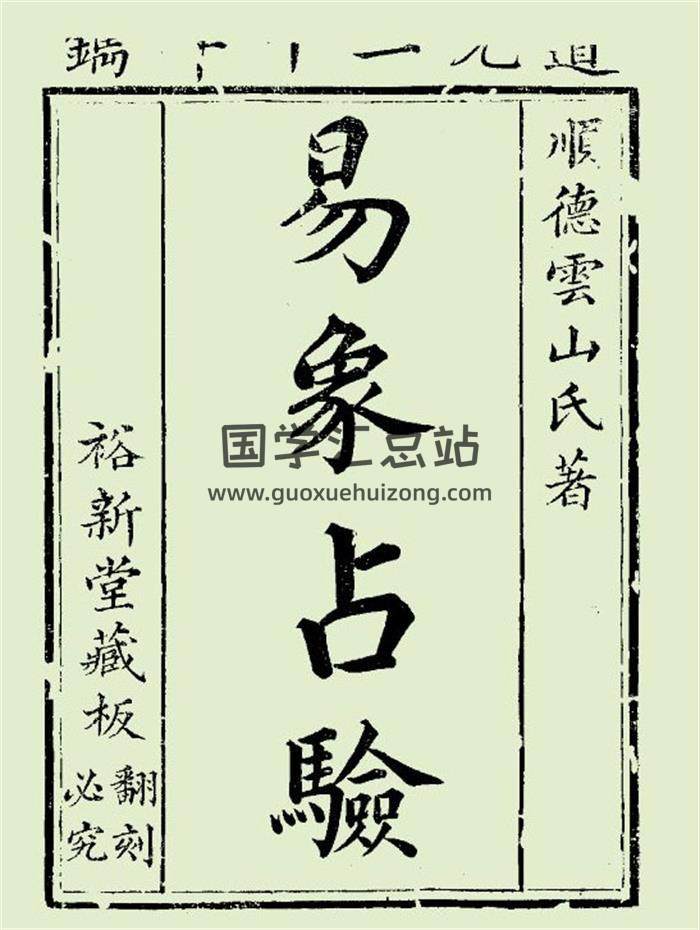 順德雲山氏著
易象占驗
裕新堂藏板
翻刻
必究
国学汇总站
www.guoxuehuizong.com